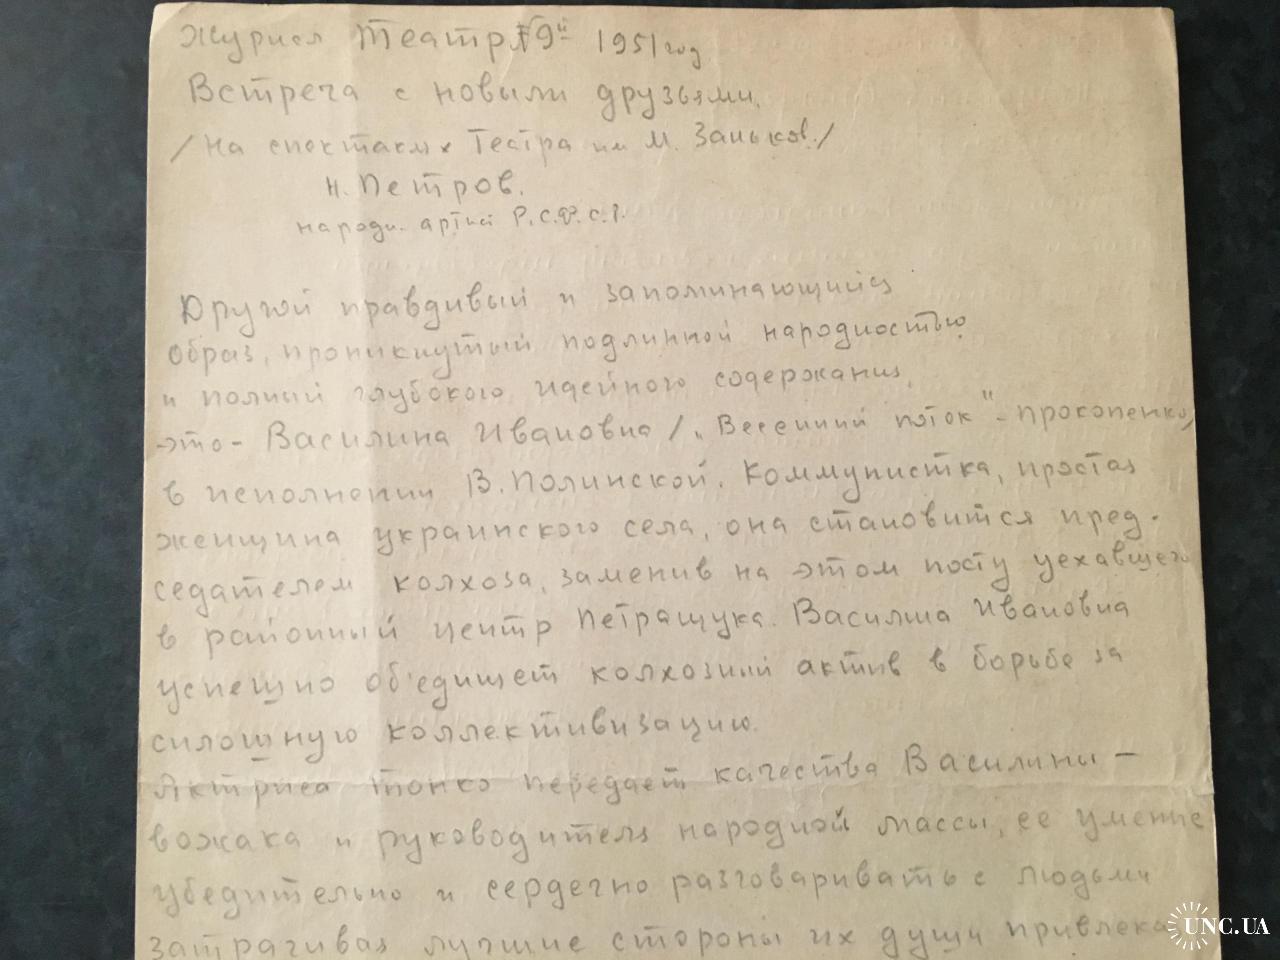 Журнал Театр №9й 1951 год
Встреча с новыми друзьями.
/На спектаклях Театра им М. Заньков./
Н. Петров.
народн. артист Р.С.Ф.С.Р.
Другой правдивый и запоминающийся
образ, проникнутый подлинной народностью
и полный глубокого идейного содержания,
это - Василина Ивановна /„Весенний поток" - Прокопенко/
в исполнении В. Полинской. Коммунистка, простая
женщина украинского села, она становится пред-
седателем колхоза, заменив на этом посту уехавшего
в районный центр Петращука. Василина Ивановна
успешно об'единяет колхозный актив в борьбе за
сплошную коллективизацию.
Актриса тонко передает качества Василины —
вожака и руководителя народной массы, ее умение
убедительно и сердечно разговаривать с людьми
затрагивая лучшие стороны их души привлека
UNC.UA